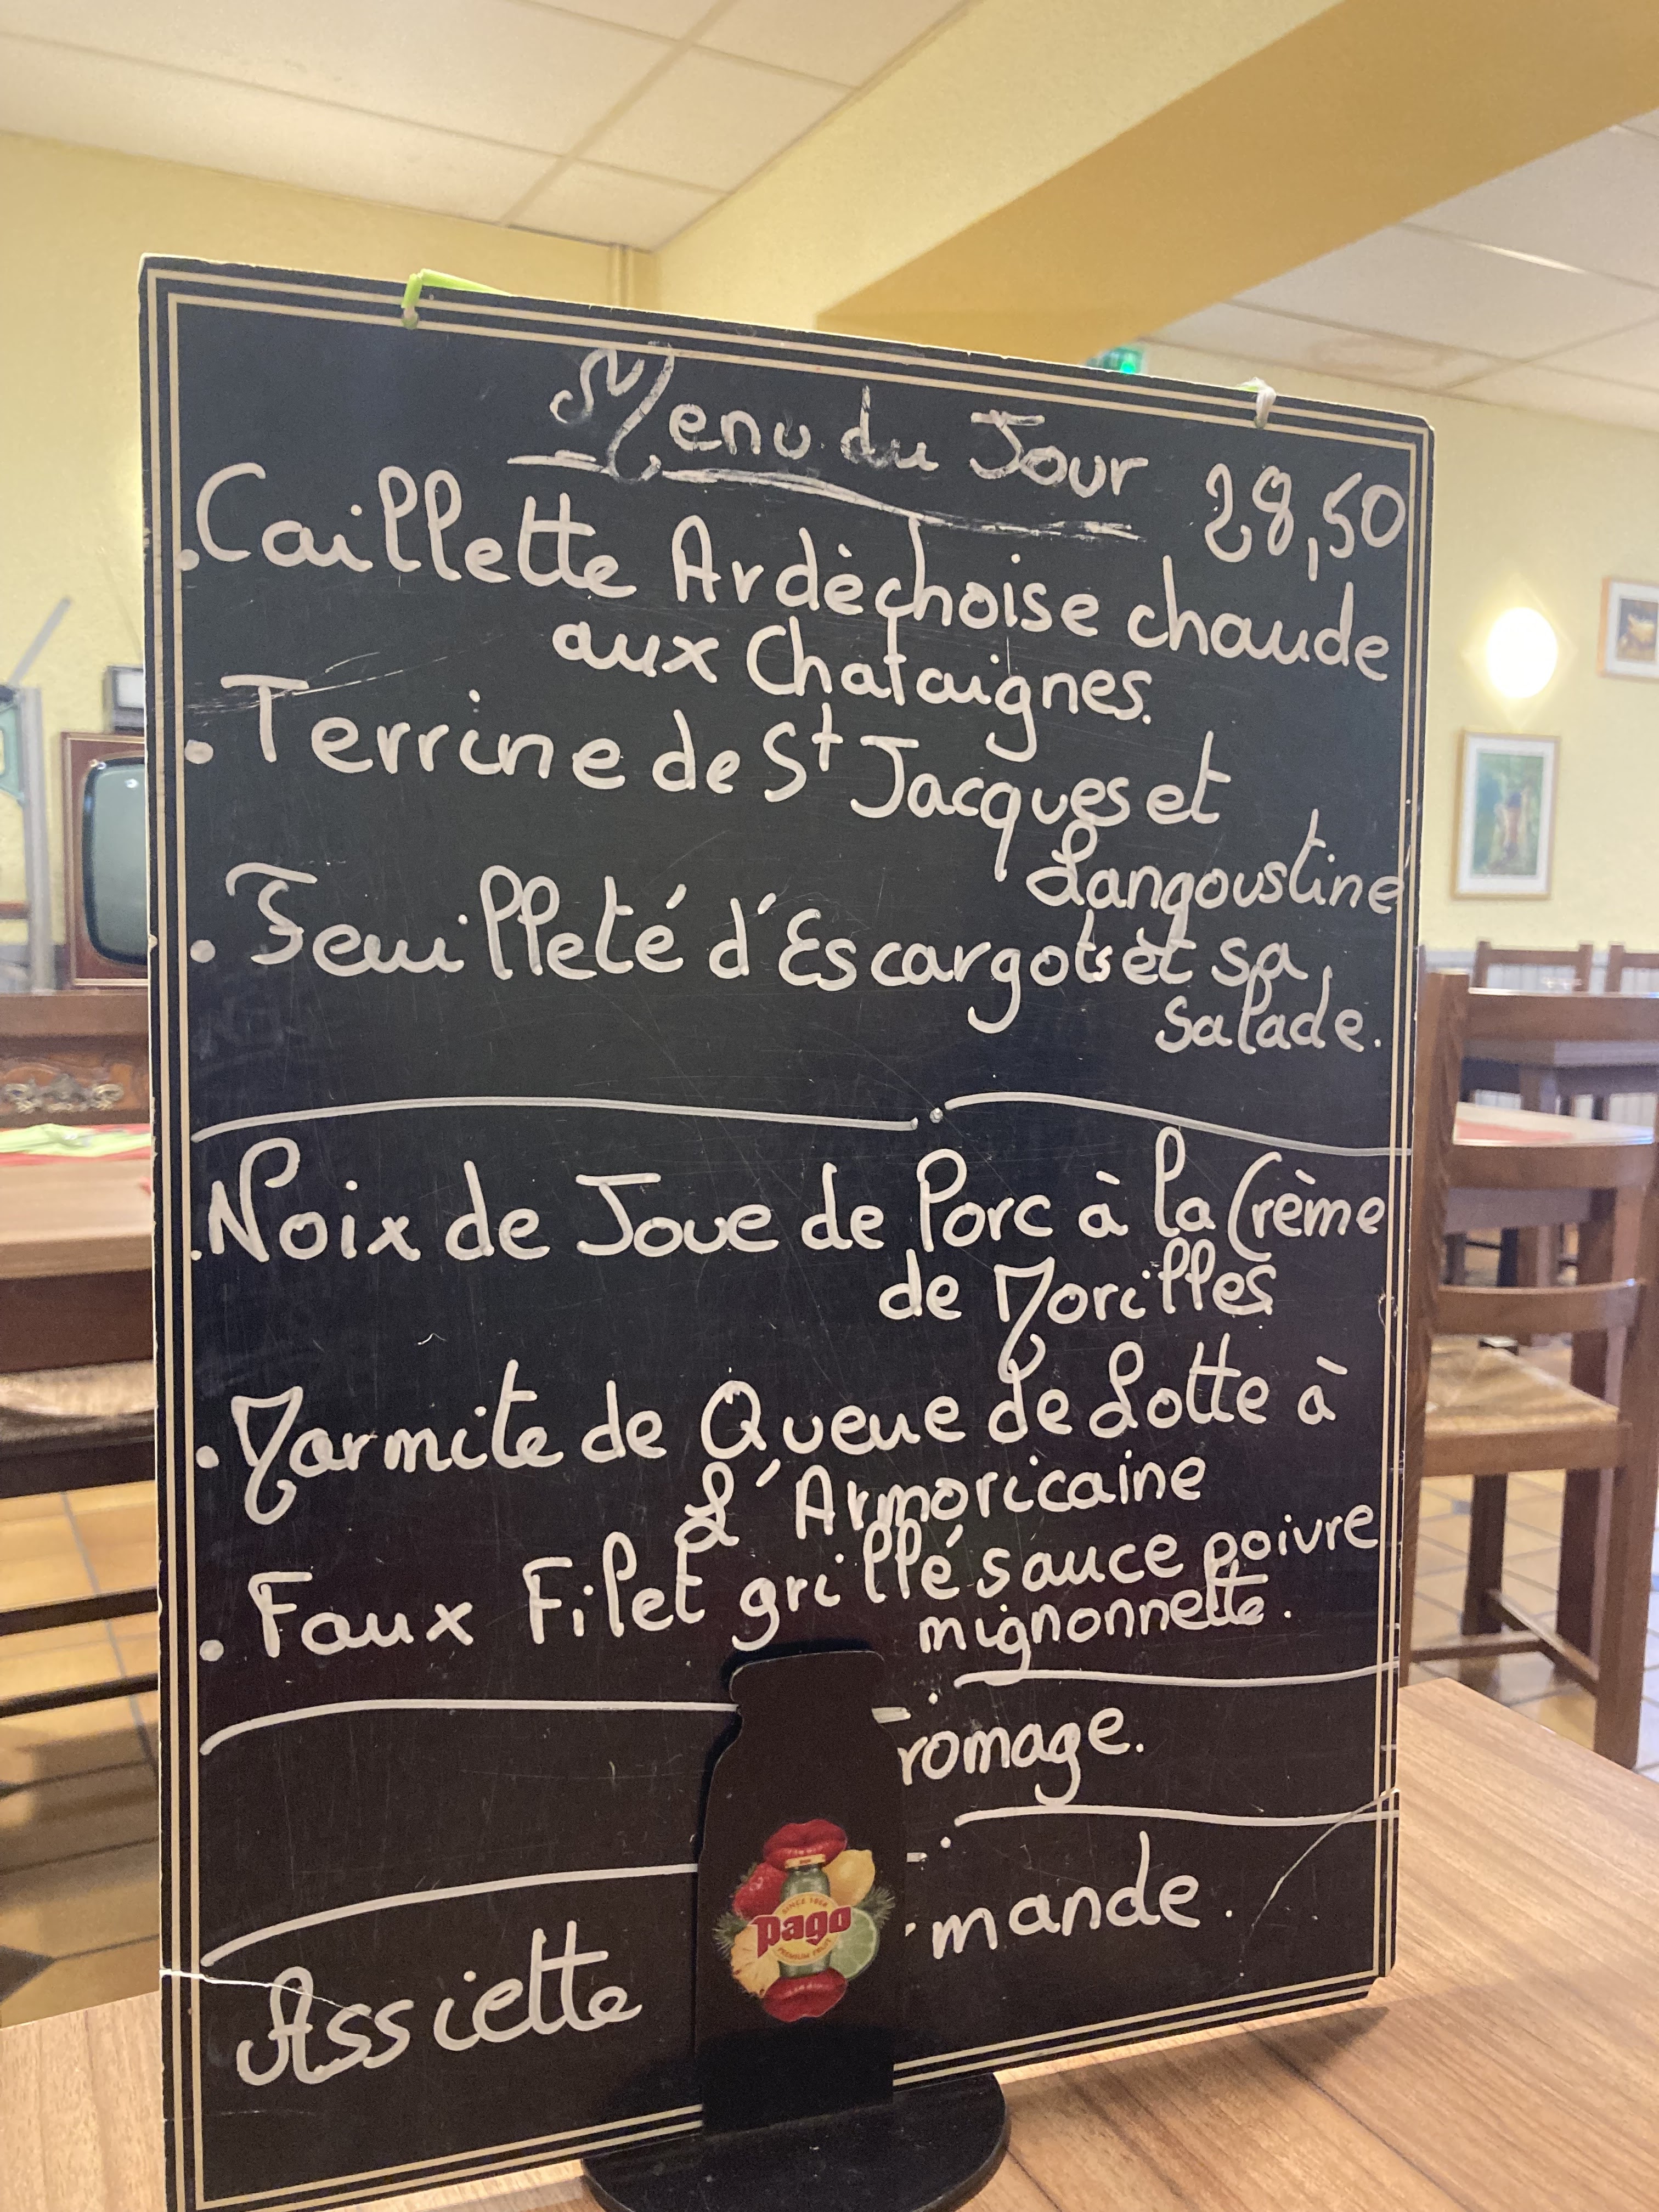 Menu du Jour 28,50
.Caillette Ardèchoise chaude
aux Chataignes.
. Terrine de St Jacques et
Langoustine
. Feuilleté d'Escargots et sa
Salade.
.Noix de Joue de Porc à la Crème
de Morilles
. Marmite de Queue de Lotte à
L'Armoricaine
. Faux Filet grillé sauce poivre
mignonnette.
romage.
Assiette mande.
SINCE 1888
pago
PREMIUM FRUIT